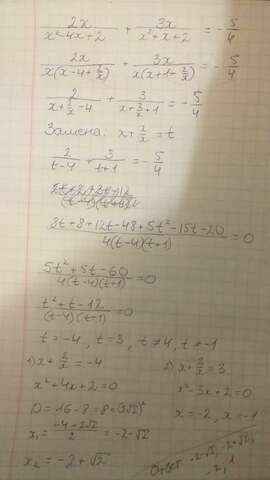 2x/(x²-4x+2) + 3x/(x²+x+2) = -5/4
2x/(x(x-4+2/x)) + 3x/(x(x+1+2/x)) = -5/4
2/(x+2/x-4) + 3/(x+2/x+1) = -5/4
Замена: x+2/x = t
2/(t-4) + 3/(t+1) = -5/4
(8t+8+12t-48+5t²-15t-20)/(4(t-4)(t+1)) = 0
(5t²+5t-60)/(4(t-4)(t+1)) = 0
(t²+t-12)/((t-4)(t+1)) = 0
t=-4, t=3, t≠4, t≠-1
1) x+2/x = -4
x²+4x+2=0
D=16-8=8=(2√2)²
x₁= (-4-2√2)/2 = -2-√2
x₂ = -2+√2
2) x+2/x = 3
x²-3x+2=0
x=-2, x=-1
Ответ -2-√2, -2+√2,